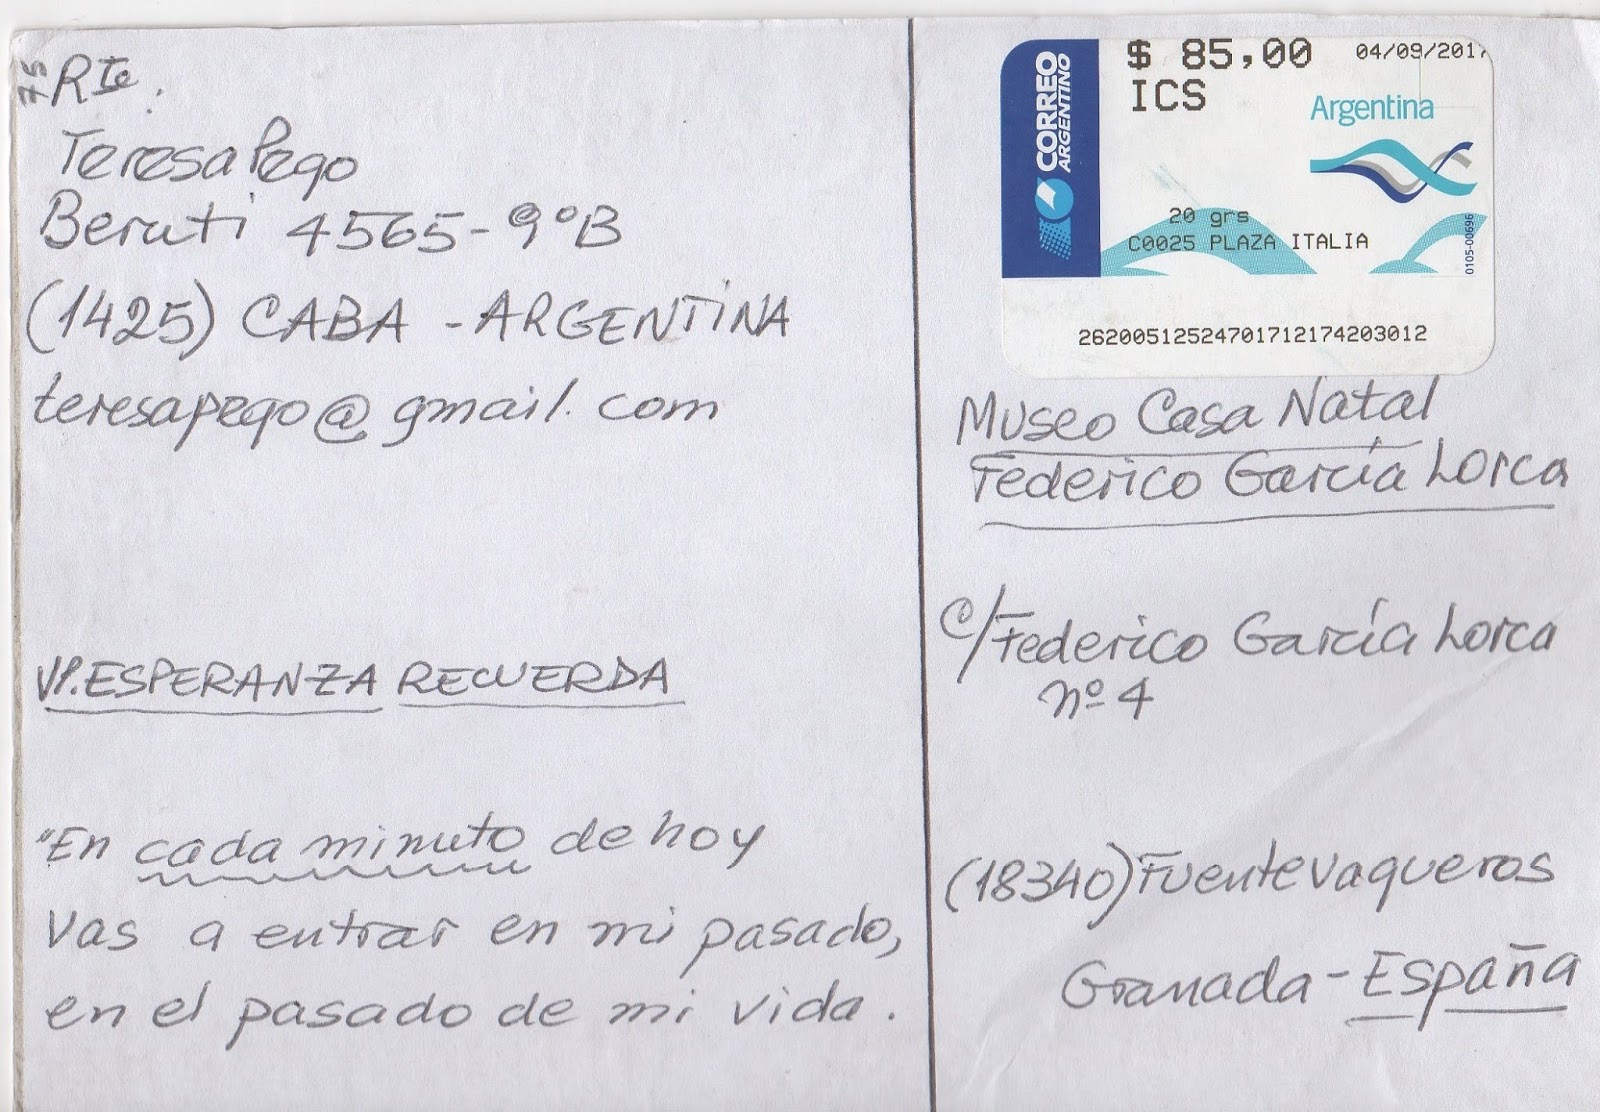 75
Rte.
Teresa Pego
Beruti 4565-9ºB
(1425) CABA - ARGENTINA
teresapego@gmail.com
ESPERANZA RECUERDA
"En cada minuto de hoy
vas a entrar en mi pasado,
en el pasado de mi vida.
$ 85,00 04/09/2017
ICS
CORREO
ARGENTINO
Argentina
20 grs
C0025 PLAZA ITALIA
0105-00696
26200512524701712174203012
Museo Casa Natal
Federico García Lorca
C/Federico García Lorca
nº 4
(18340) Fuente vaqueros
Granada - España